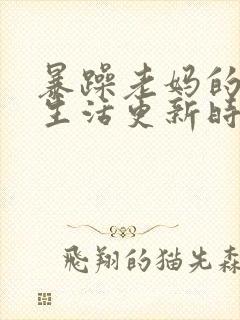 暴躁老妈的
生活更新时
飛翔的猫先森